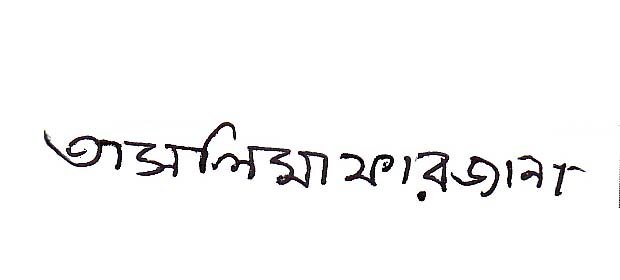 তাসলিমা ফারজানা